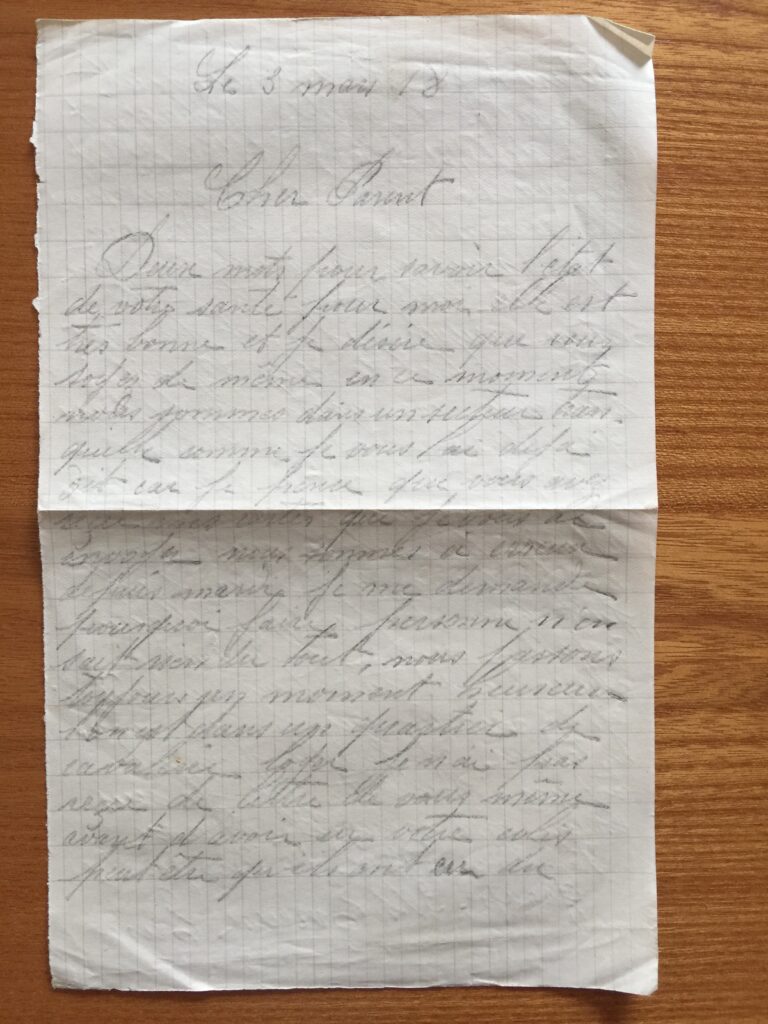 Le 3 mars 18
Cher Parent
Deux mots pour savoir l'état
de votre santé pour moi elle est
très bonne et je désire que vous
soyez de même en ce moment
nous sommes dans un secteur tran-
quille comme je vous l'ai deja
dit car je pence que vous avez
que je vous ai
nous sommes a
depuis je me demande
pourquoi faire personne n'en
sait rien du tout, nous passons
toujours un moment heureuse
ment dans un quartier de
cavalerie je n'ai pas
reçue de lettre de vous même
avant d'avoir eu votre colis
peut être qu'ils ont eu du